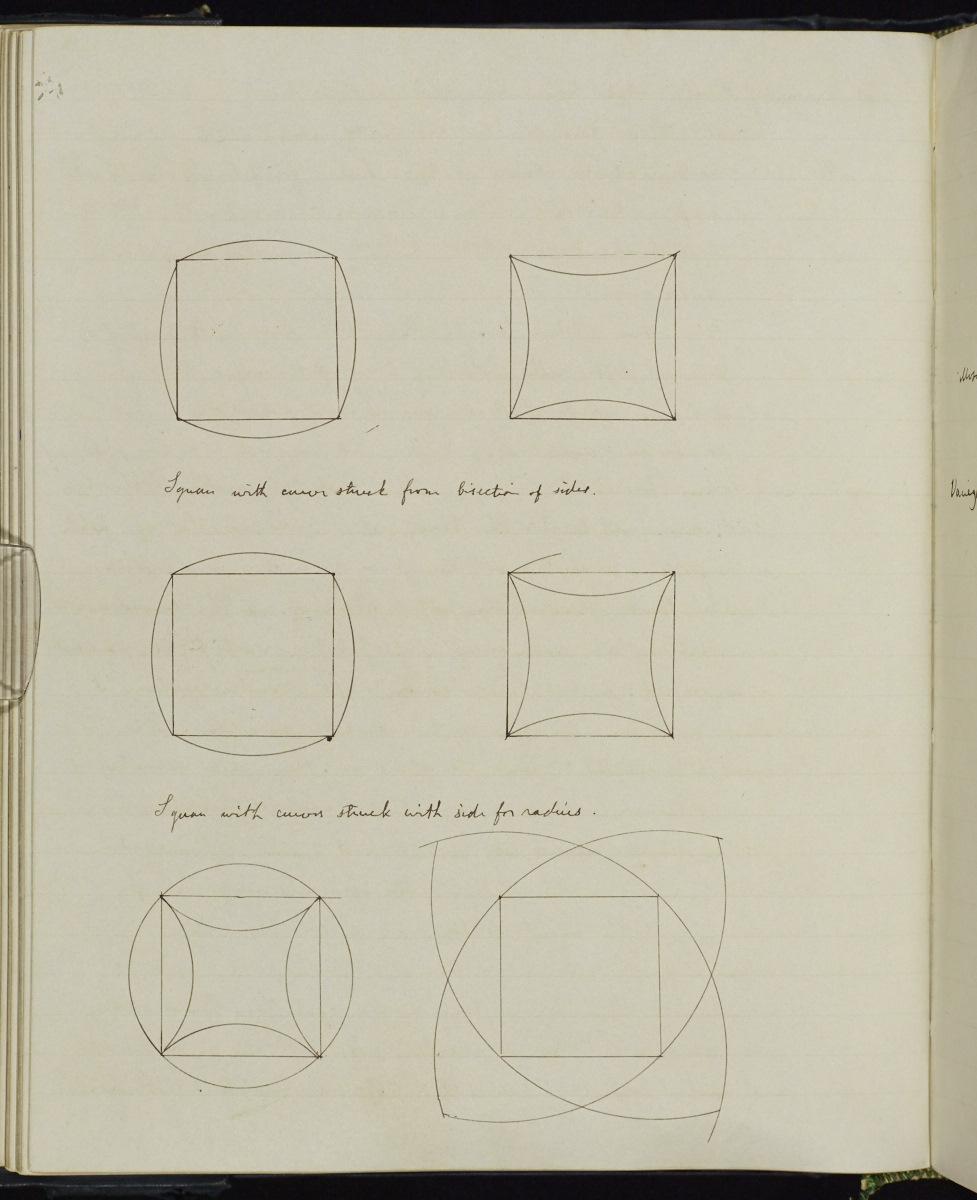 Square with curves struck from bisection of sides.
Square with curves struck with side for radius.